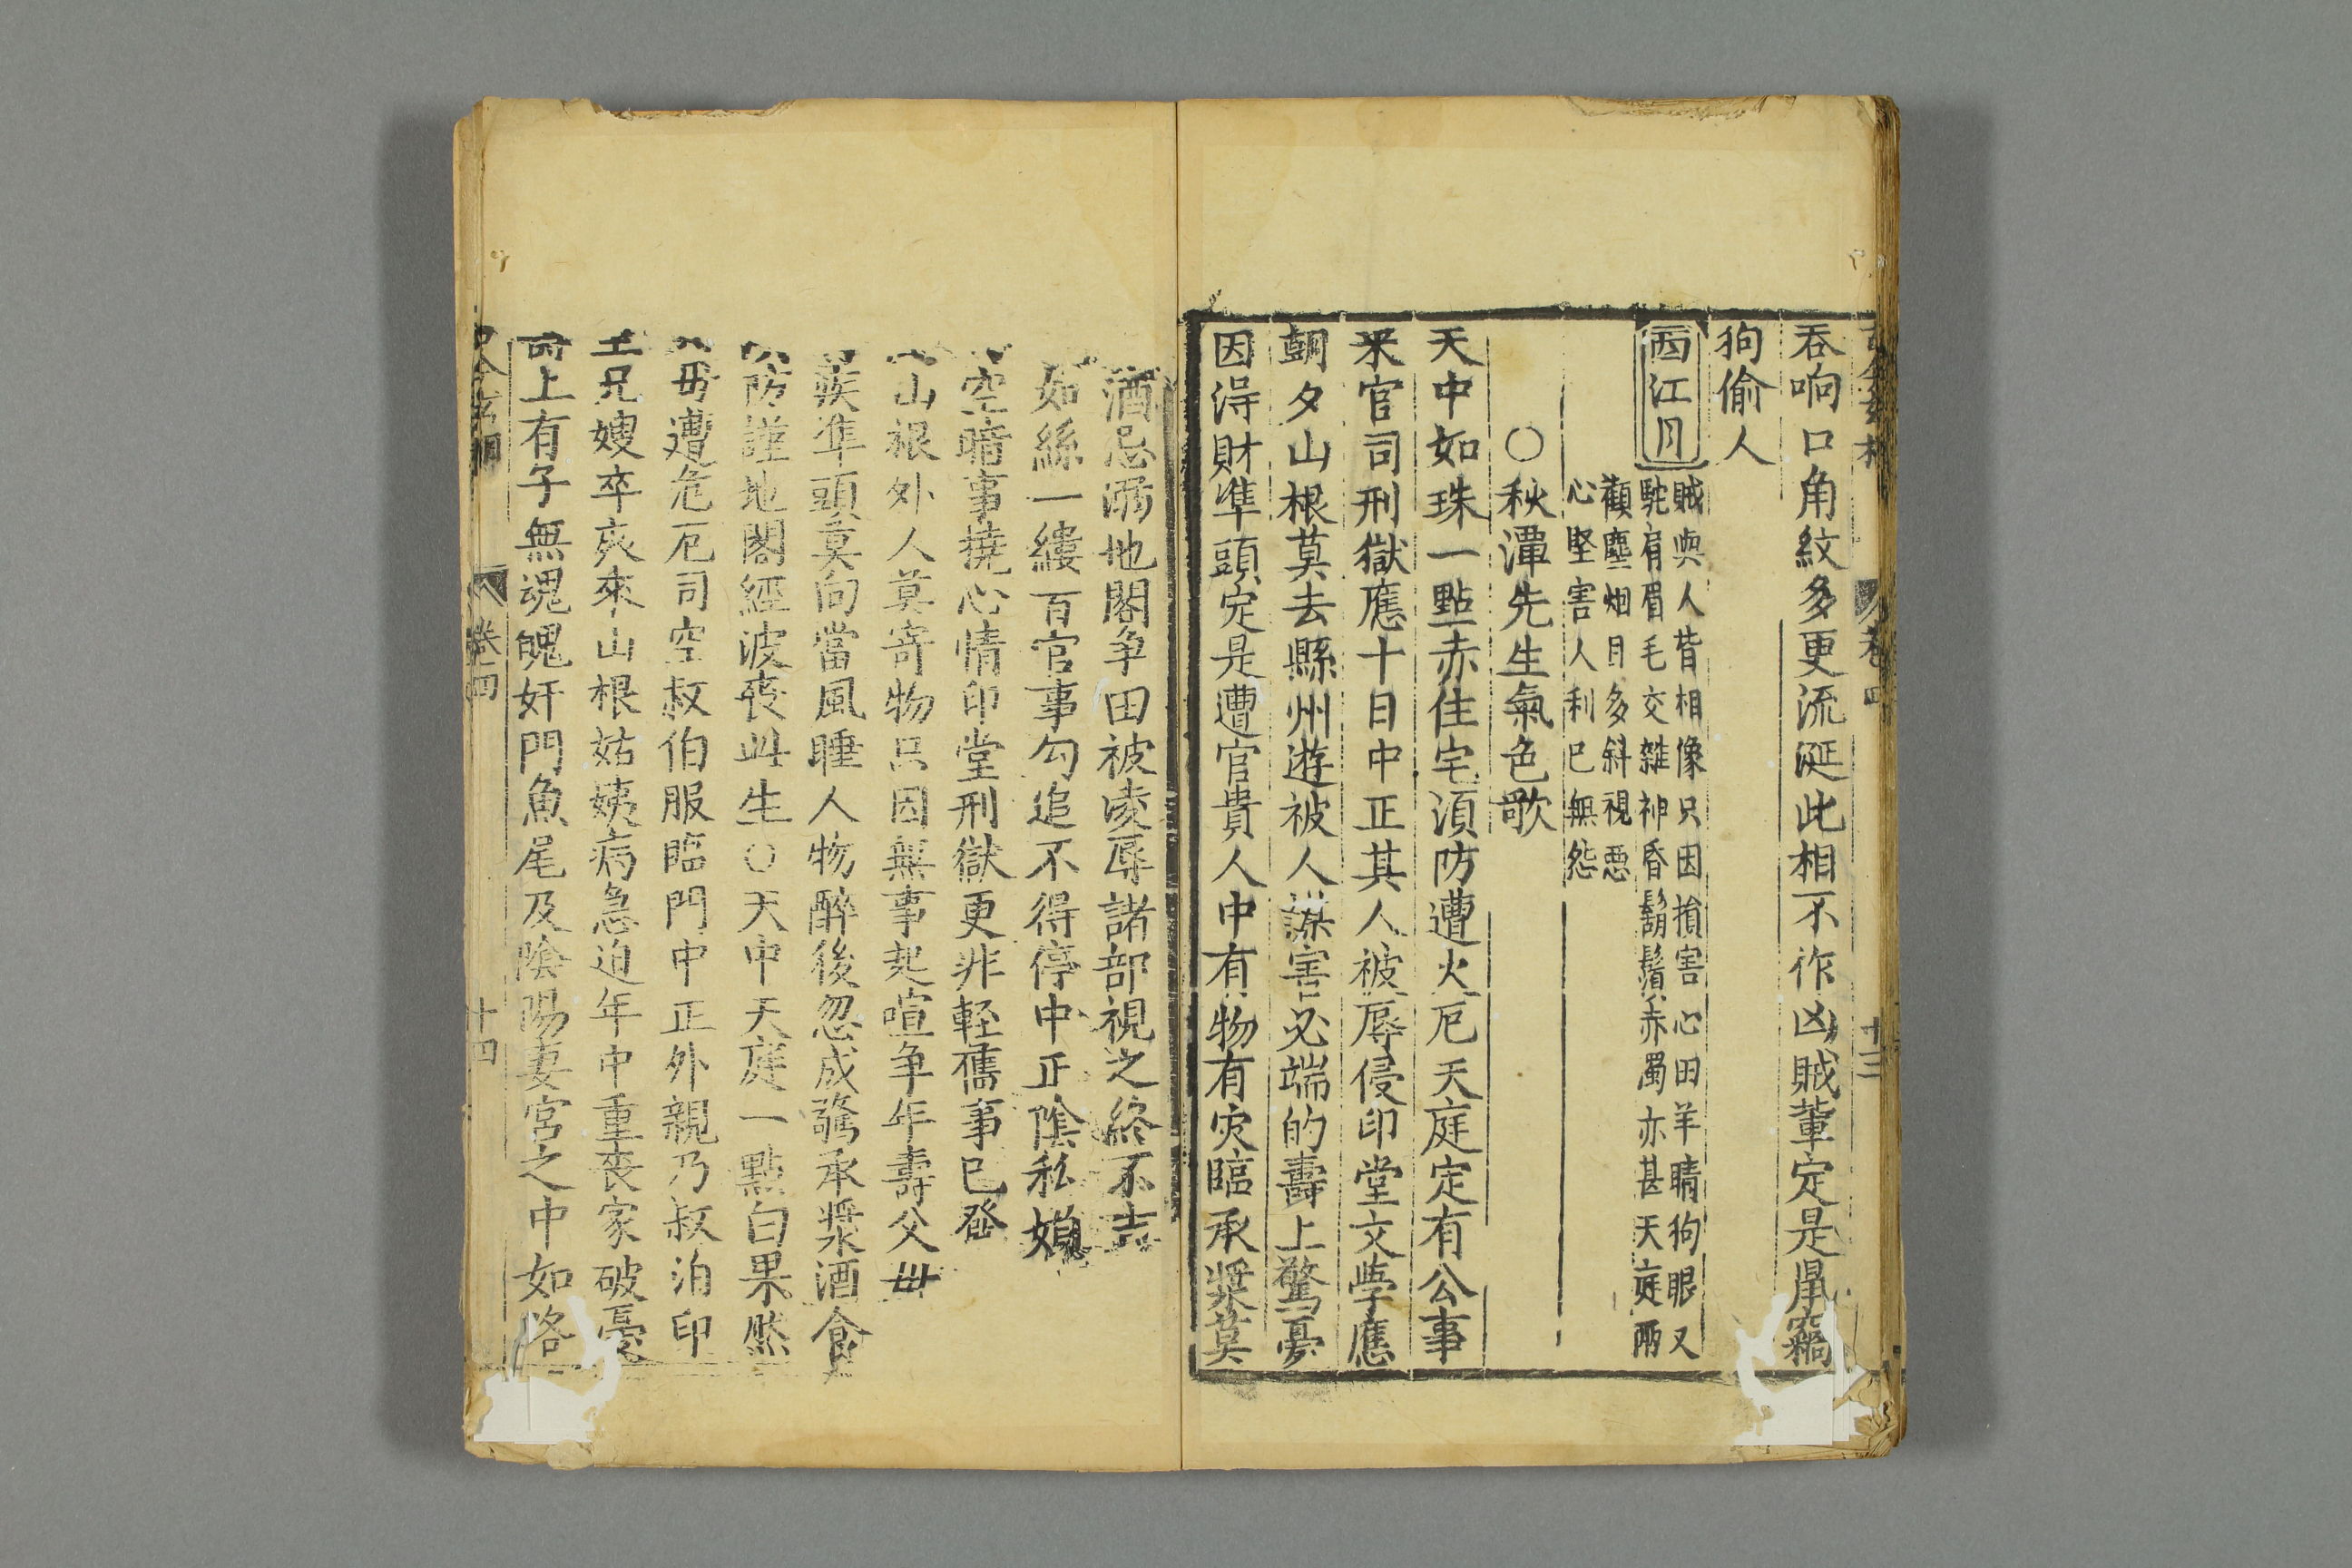 卷四
十三
吞响口角紋多更流涎此相不作凶賊輩定是鼠竊
狗偷人
西江月
賊與人皆相像只因損害心田羊睛狗眼又
駝肩眉毛交雜神昏鬍鬚赤濁亦甚天庭兩
顴塵烟目多斜視惡
心堅害人利已無怨
○秋潭先生氣色歌
天中如珠一點赤住宅須防遭火厄天庭定有公事
來官司刑獄應十日中正其人被辱侵印堂文學應
朝夕山根莫去縣州遊被人謀害必端的壽上驚憂
因淂財準頭定是遭官貴人中有物有灾臨承漿莫
酒忌溺地閣争田被凌辱諸部視之終不吉
如絲一縷百官事勾追不得停中正陰私
空暗事撓心情印堂刑獄更非輕舊事已發
山根外人莫寄物只因無事起喧争年壽父
疾準頭莫向當風睡人物醉後忽成驚承漿酒食
防謹地閣經波喪此生○天中天庭一點白果然
母遭危厄司空叔伯服臨門中正外親乃叔泊印
主兄嫂卒哀來山根姑姨病急迫年中重喪家破憂
上有子無魂魄奸門魚尾及陰陽妻宮之中如烙
卷四
十四